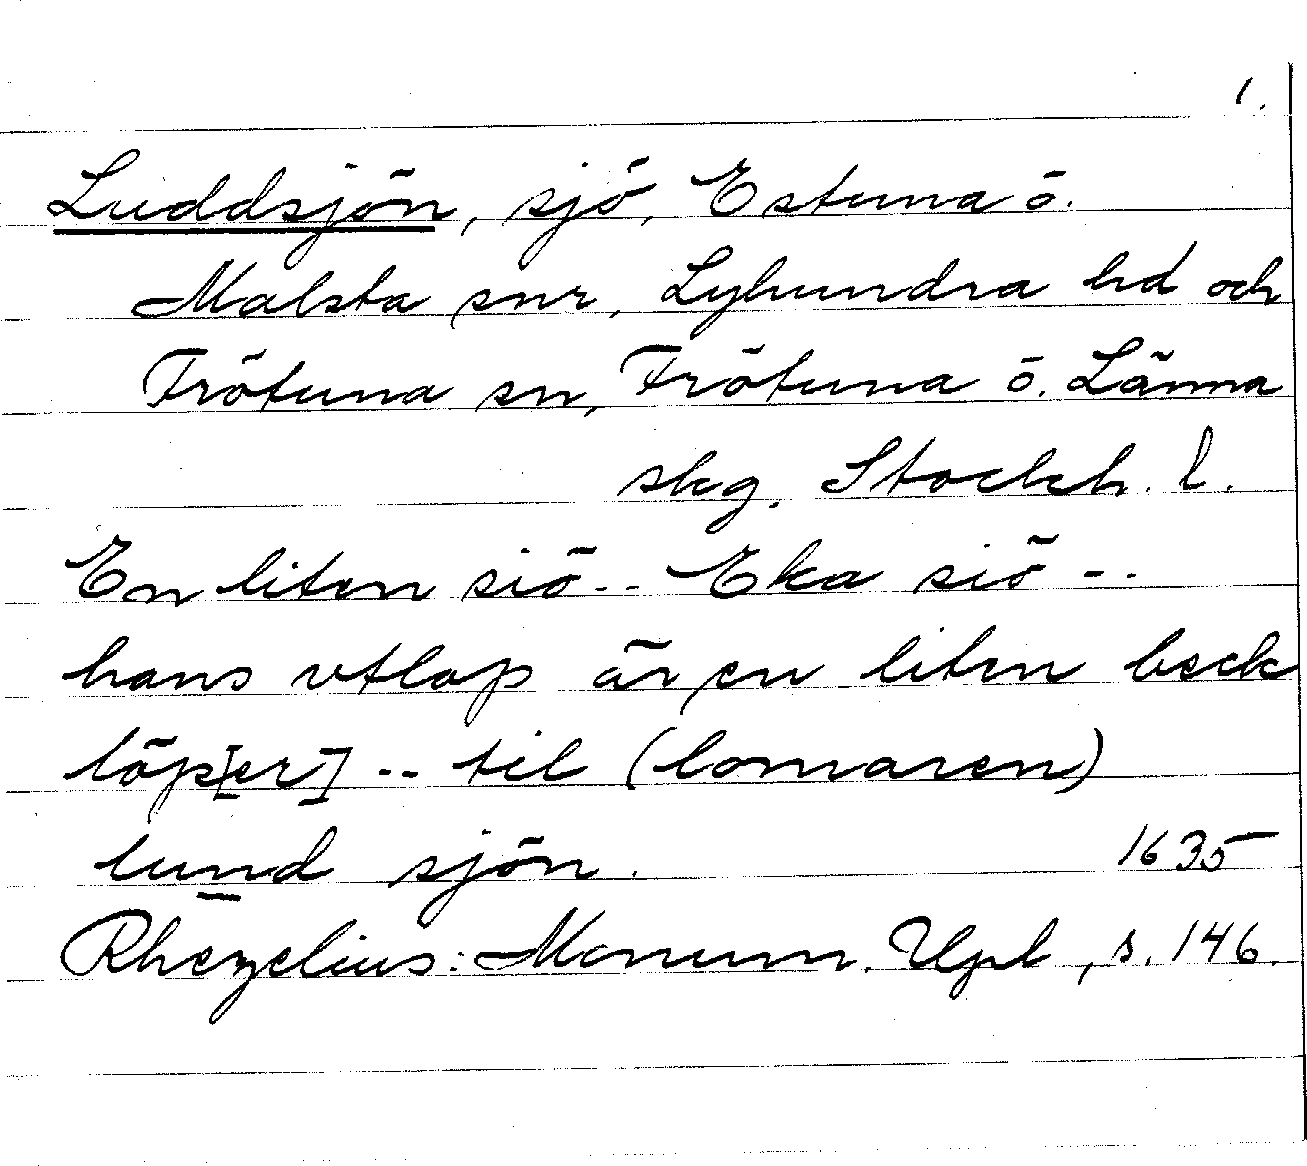 1.
Luddsjön, sjö, Estuna o.
Malsta snr, Lyhundra hd och
Frötuna sn, Frötuna o. Länna
skg. Stockh. l.
En liten siö -- Eka siö --
hans vtlop är en liten beck
löp[er] -- til (lomaren)
lund sjön. 1635
Rhezelius: Monum. Upl, s. 146.